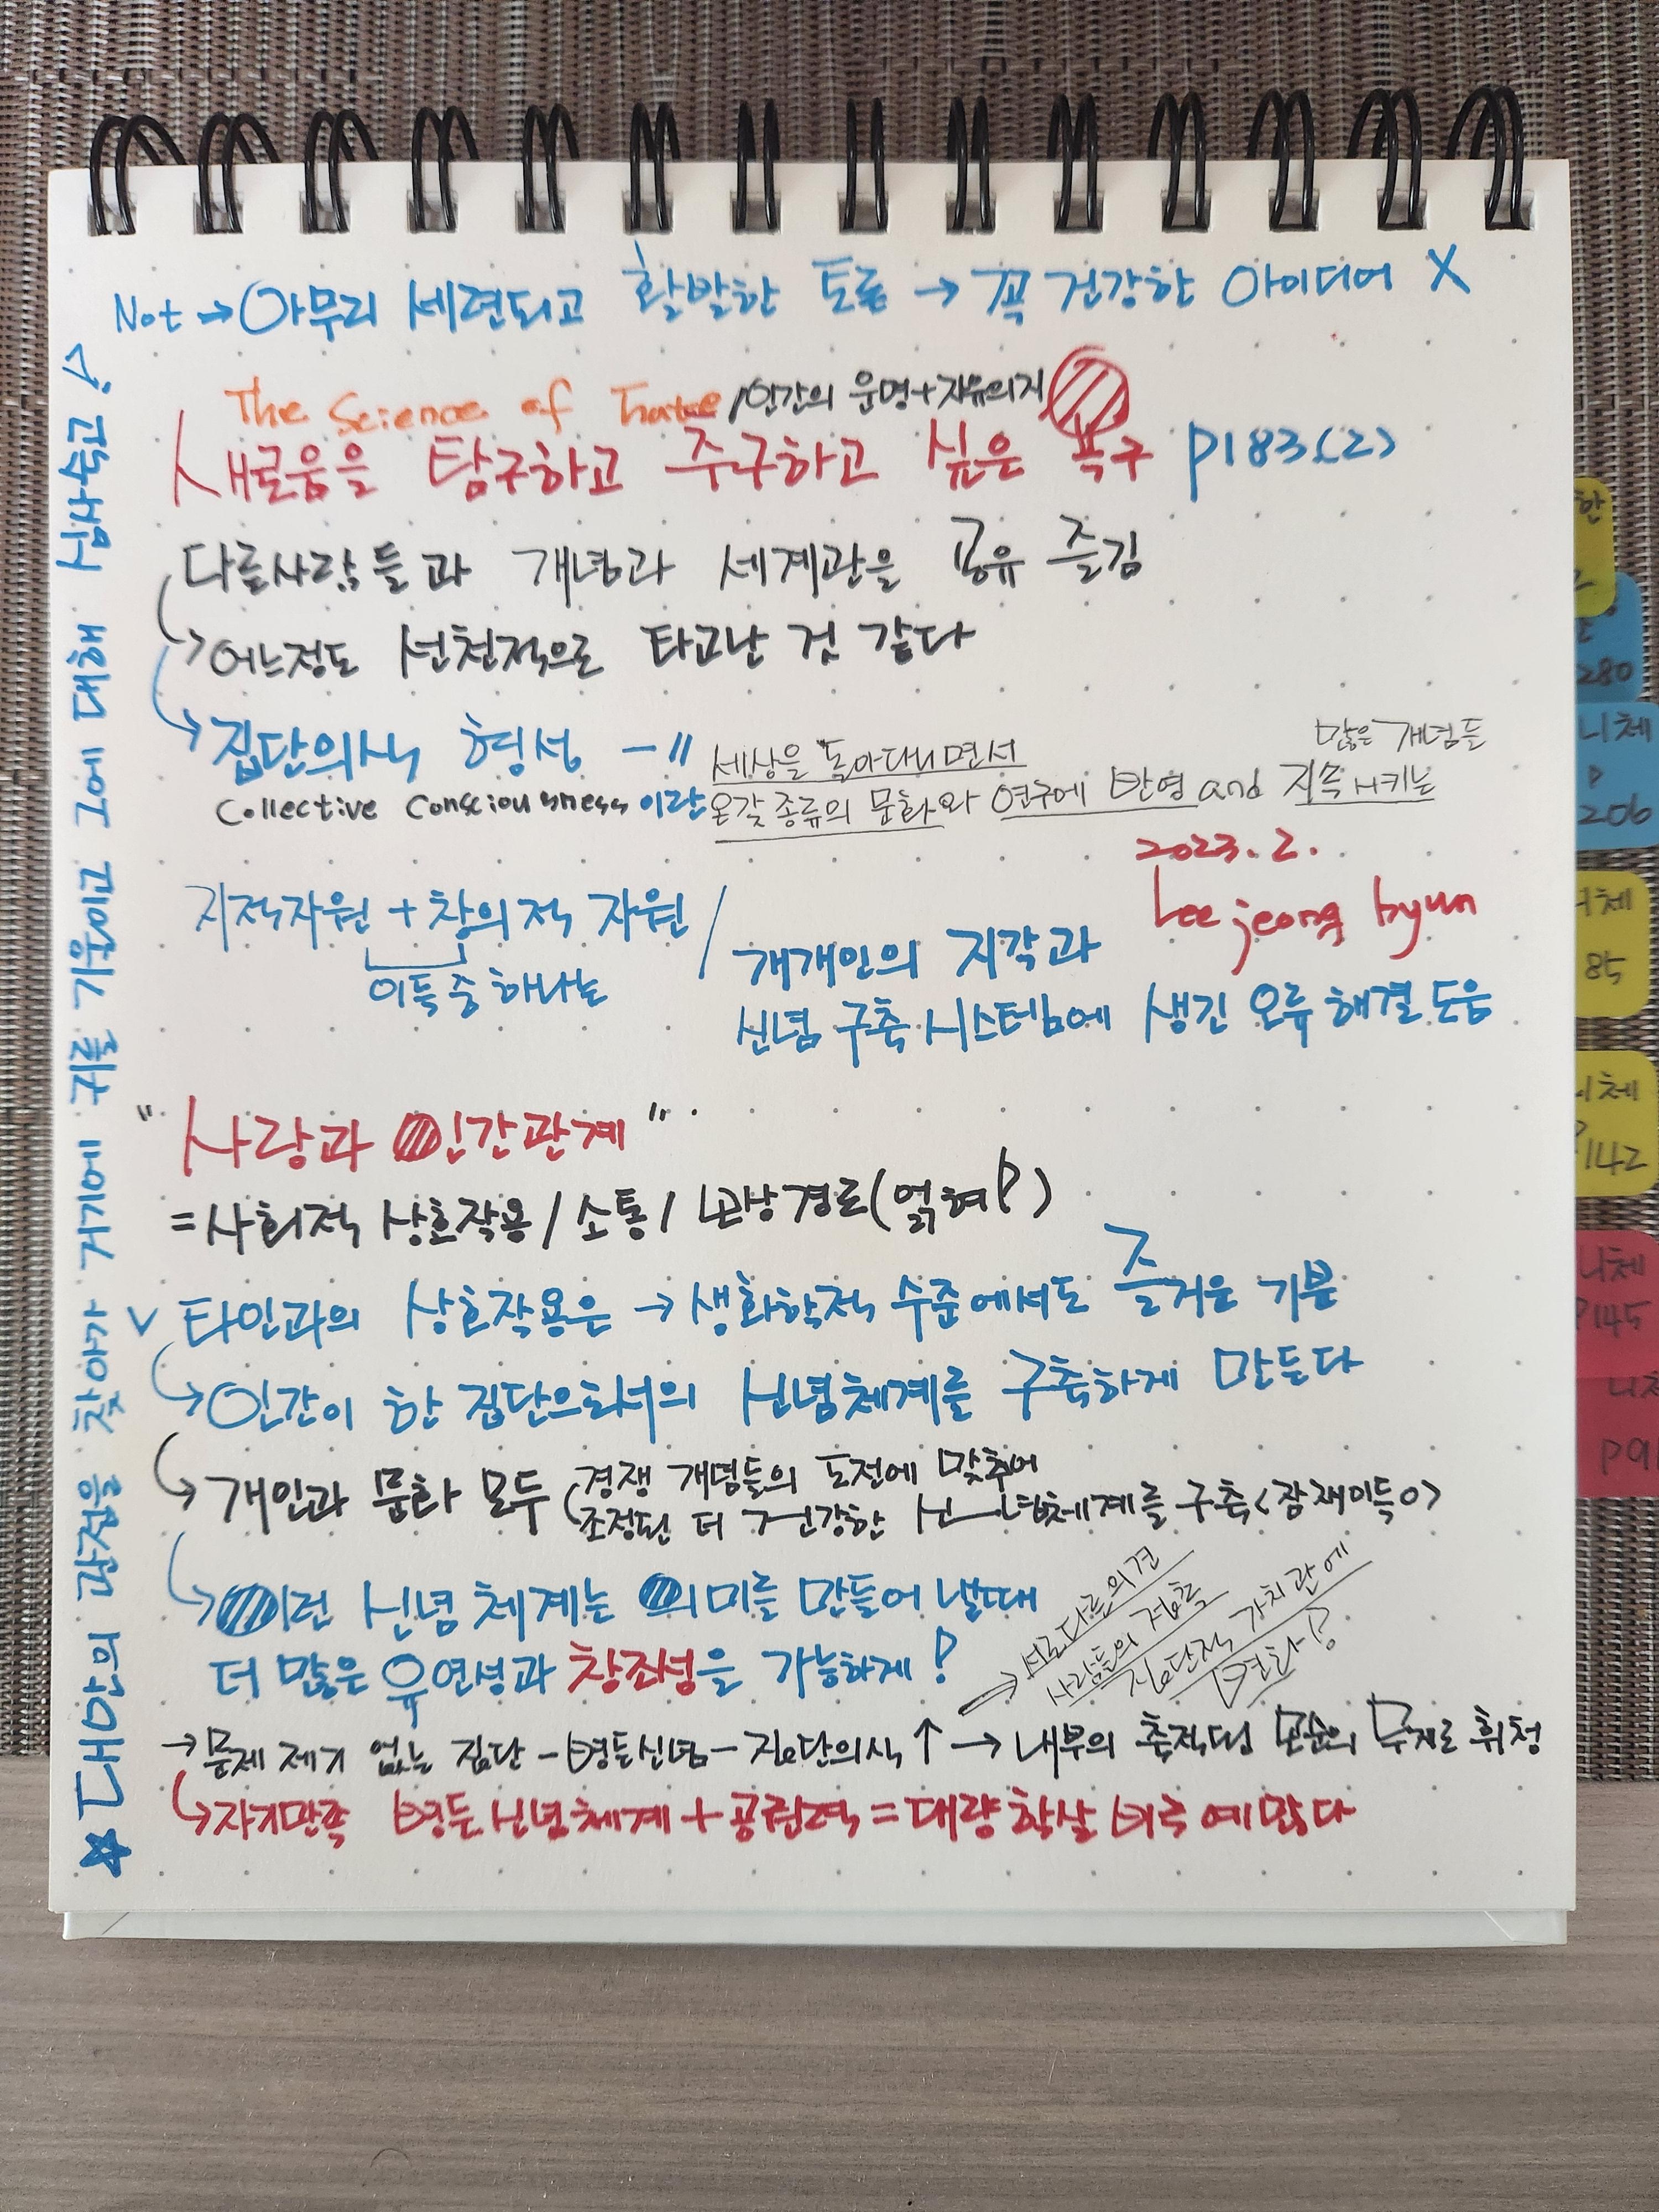 Not → 아무리 세련되고 활발한 토론 → 꼭 건강한 아이디어 X
The Science of Fate / 인간의 운명+자유의지
새로움을 탐구하고 추구하고 싶은 욕구 P183.(2)
다른사람들과 개념과 세계관을 공유 즐김
→ 어느정도 선천적으로 타고난 것 같다
→ 집단의식 형성 - "
세상을 돌아다니면서 많은 개념들
Collective Consciousness 이란 온갖 종류의 문화와 연구에 반영 and 지속시키는
2023. 2.
Lee jeong hyun
지적자원 + 창의적 자원 /
이들 중 하나는
개개인의 지각과
신념 구축 시스템에 생긴 오류 해결 도움
"사랑과 인간관계"
= 사회적 상호작용 / 소통 / 보상경로(얽혀)
V 타인과의 상호작용은 → 생화학적 수준에서도 즐거운 기분
→ 인간이 한 집단으로서의 신념체계를 구축하게 만든다
→ 개인과 문화 모두 경쟁 개념들의 도전에 맞추어
조정된 더 건강한 신념체계를 구축<잠재이득o>
→ 이런 신념 체계는 의미를 만들어 낼때
더 많은 유연성과 창조성을 가능하게!
→ 서로다른의견
사람들의 접촉
집단적 가치관에
변화!?
→ 문제 제기 없는 집단 - 병든신념 - 집단의식 ↑ → 내부의 축적된 모순의 무게로 휘청
→ 자기만족 병든 신념체계 + 공권력 = 대량 학살 비극 예많다
☆ 대안의 관점을 찾아가 거기에 귀를 기울이고 그에 대해 심사숙고
한
280
니체
P
206
85
142
니체
P145
P91